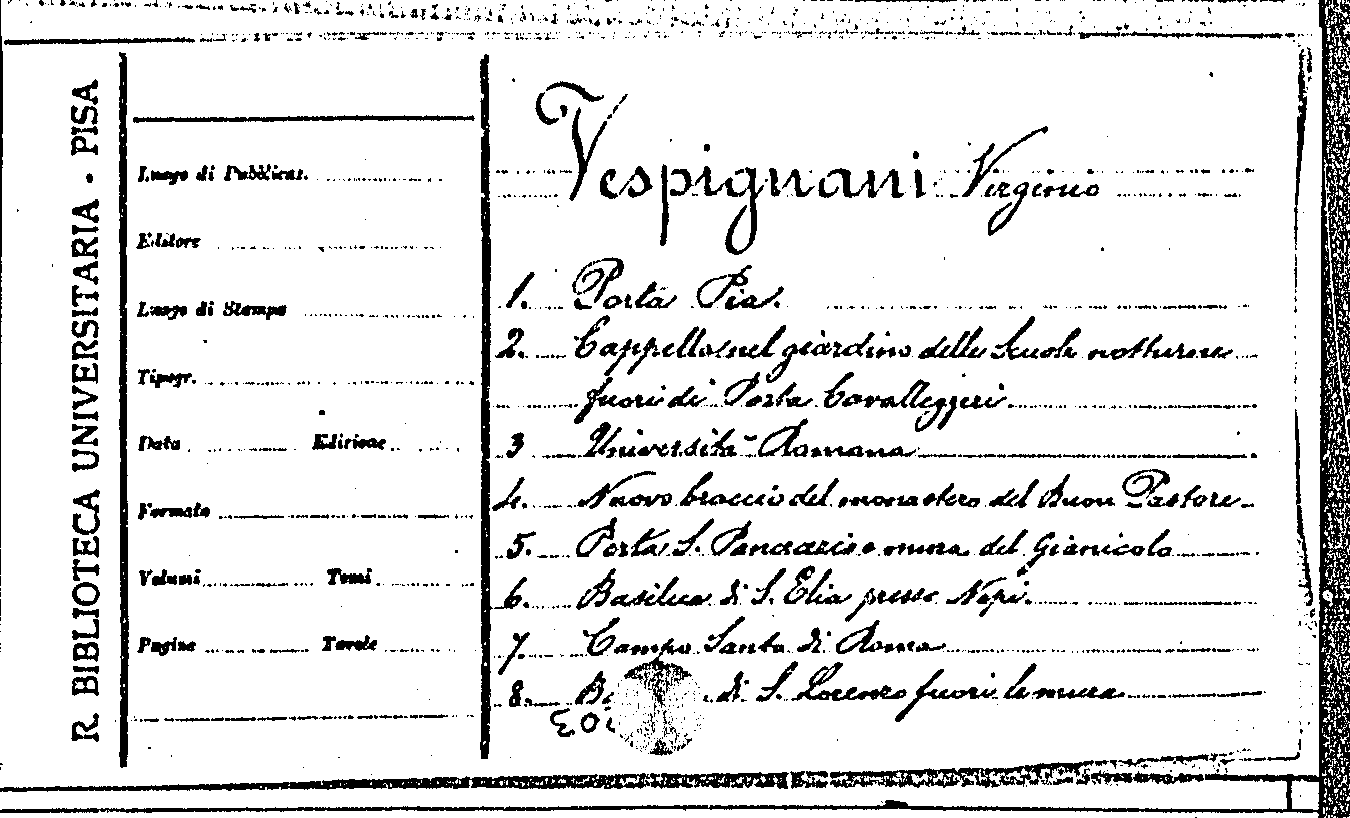 R. BIBLIOTECA UNIVERSITARIA - PISA
Luogo di Pubblicaz.
Editore
Luogo di Stampa
Tipogr.
Data Edizione
Formato
Volumi Tomi
Pagine Tavole
Vespignani Virginio
1. Porta Pia.
2. Cappella nel giardino delle Scuole notturne
fuori di Porta Cavalleggeri.
3 Università Romana
4. Nuovo braccio del monastero del Buon Pastore
5. Porta S. Pancrazio e mura del Gianicolo
6. Basilica di S. Elia presso Nepi.
7. Campo Santo di Roma
8. di S. Lorenzo fuori le mura